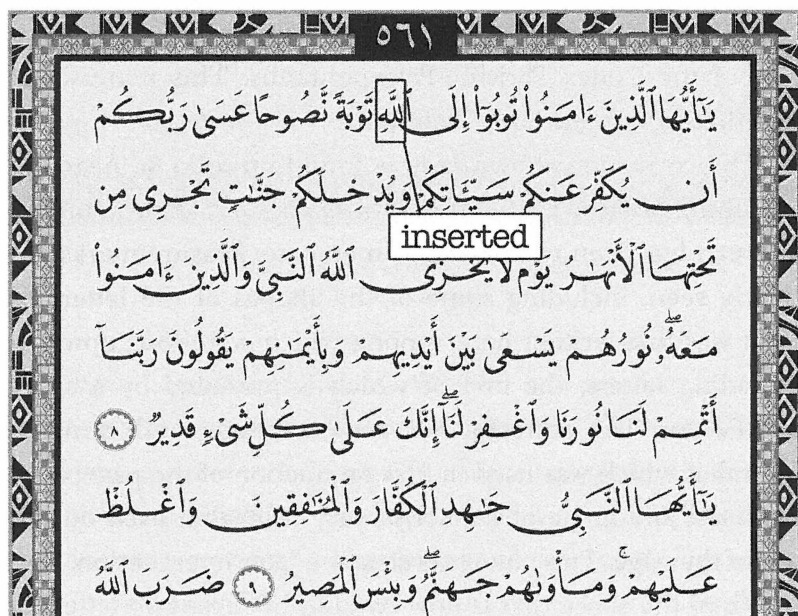 ٥٦١
يَـٰٓأَيُّهَا ٱلَّذِينَ ءَامَنُوا۟ تُوبُوٓا۟ إِلَى ٱللَّهِ تَوْبَةً نَّصُوحًا عَسَىٰ رَبُّكُمْ
أَن يُكَفِّرَ عَنكُمْ سَيِّـَٔاتِكُمْ وَيُدْخِلَكُمْ جَنَّـٰتٍ تَجْرِى مِن
inserted
تَحْتِهَا ٱلْأَنْهَـٰرُ يَوْمَ لَا يُخْزِى ٱللَّهُ ٱلنَّبِىَّ وَٱلَّذِينَ ءَامَنُوا۟
مَعَهُۥ ۖ نُورُهُمْ يَسْعَىٰ بَيْنَ أَيْدِيهِمْ وَبِأَيْمَـٰنِهِمْ يَقُولُونَ رَبَّنَآ
أَتْمِمْ لَنَا نُورَنَا وَٱغْفِرْ لَنَآ ۖ إِنَّكَ عَلَىٰ كُلِّ شَىْءٍ قَدِيرٌ ٨
يَـٰٓأَيُّهَا ٱلنَّبِىُّ جَـٰهِدِ ٱلْكُفَّارَ وَٱلْمُنَـٰفِقِينَ وَٱغْلُظْ
عَلَيْهِمْ ۚ وَمَأْوَىٰهُمْ جَهَنَّمُ ۖ وَبِئْسَ ٱلْمَصِيرُ ٩ ضَرَبَ ٱللَّهُ